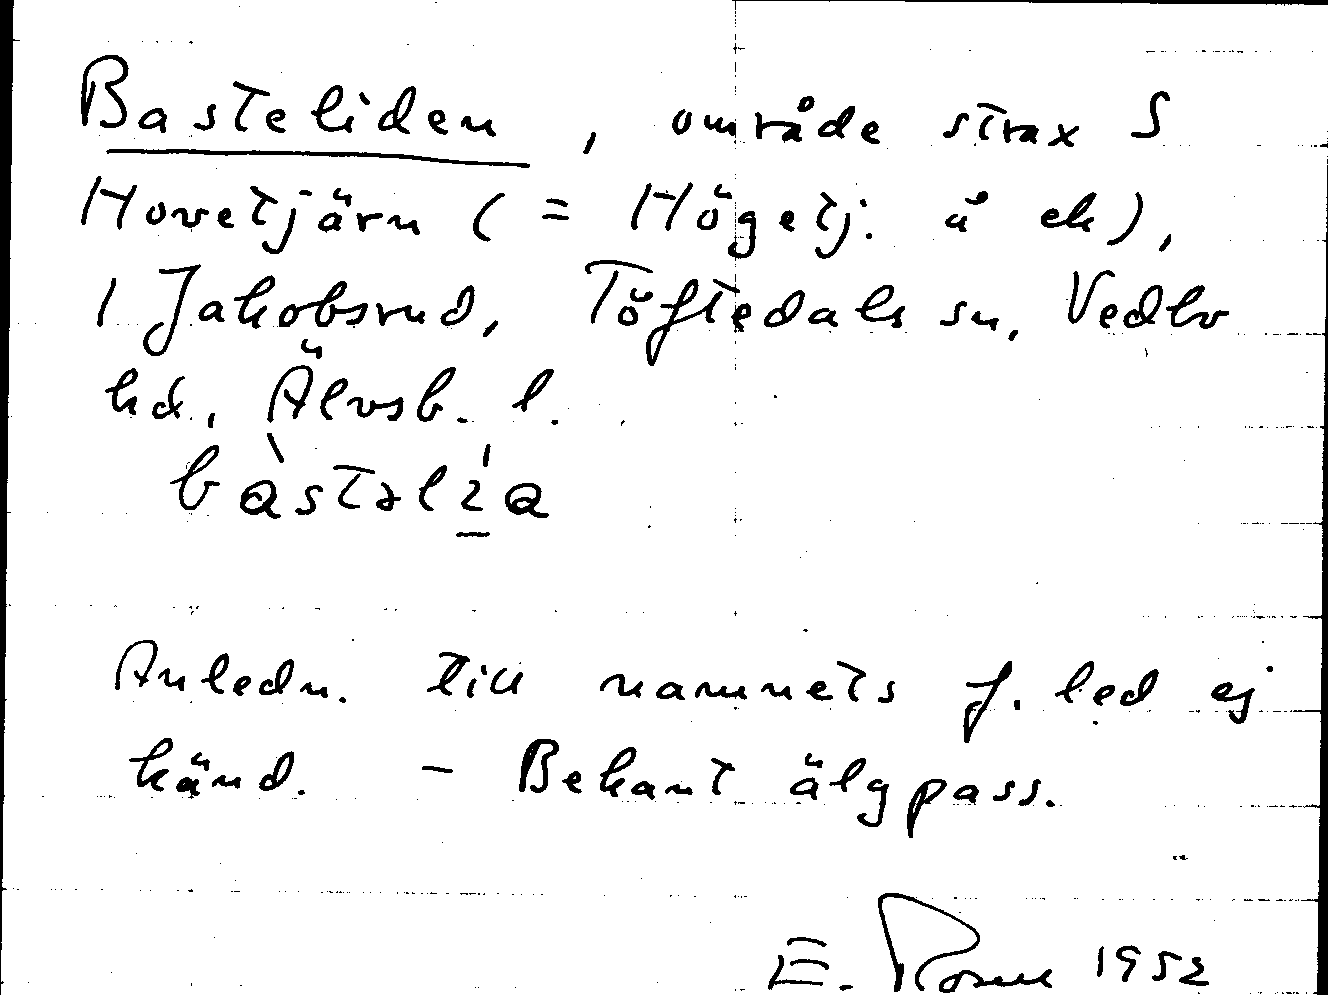 Basteliden, område strax S
Hovetjärn (= Högetj. å ek),
i Jakobsrud, Töftedals sn, Vedbo
hd, Älvsb. l.
Anledn. till namnets f. led ej
känd. – Bekant älgpass.
E. 1952